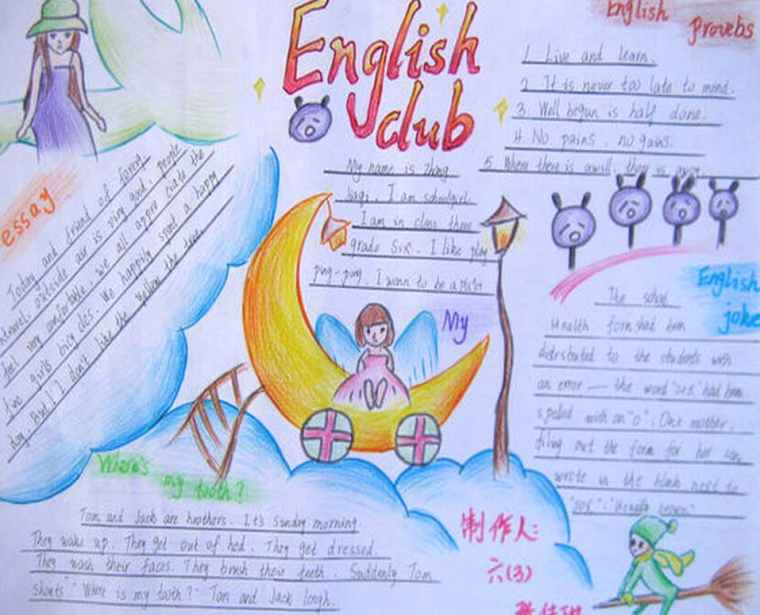 English
club
English
Proverbs
1. Live and learn.
2. It is never too late to mend.
3. Well begun is half done.
4. No pains, no gains.
5. Where there is a will, there is
My name is Zhang
I am schoolgirl
I am in class three
grade six. I like play
ping-ping. I wann to be a
My
essay
Today and friend of
outside air is very good, people
feel very comfortable, we all appre ciate the
two girls We happily spent a happy
day. And I don't like the the tree.
English
joke
The
Health form had been
distributed to the students with
an error — the word "sex" had been
spelled with an "o". One mother,
filling out the form for her son
wrote in the blank next to
Where's
my tooth?
Tom and Jack are brothers. It's sunday morning
They wake up. They get out of bed. They get dressed.
They wash their faces. They brush their teeth. Suddenly Tom
shouts "Where is my tooth?" Tom and Jack laugh.
制作人:
六(3)